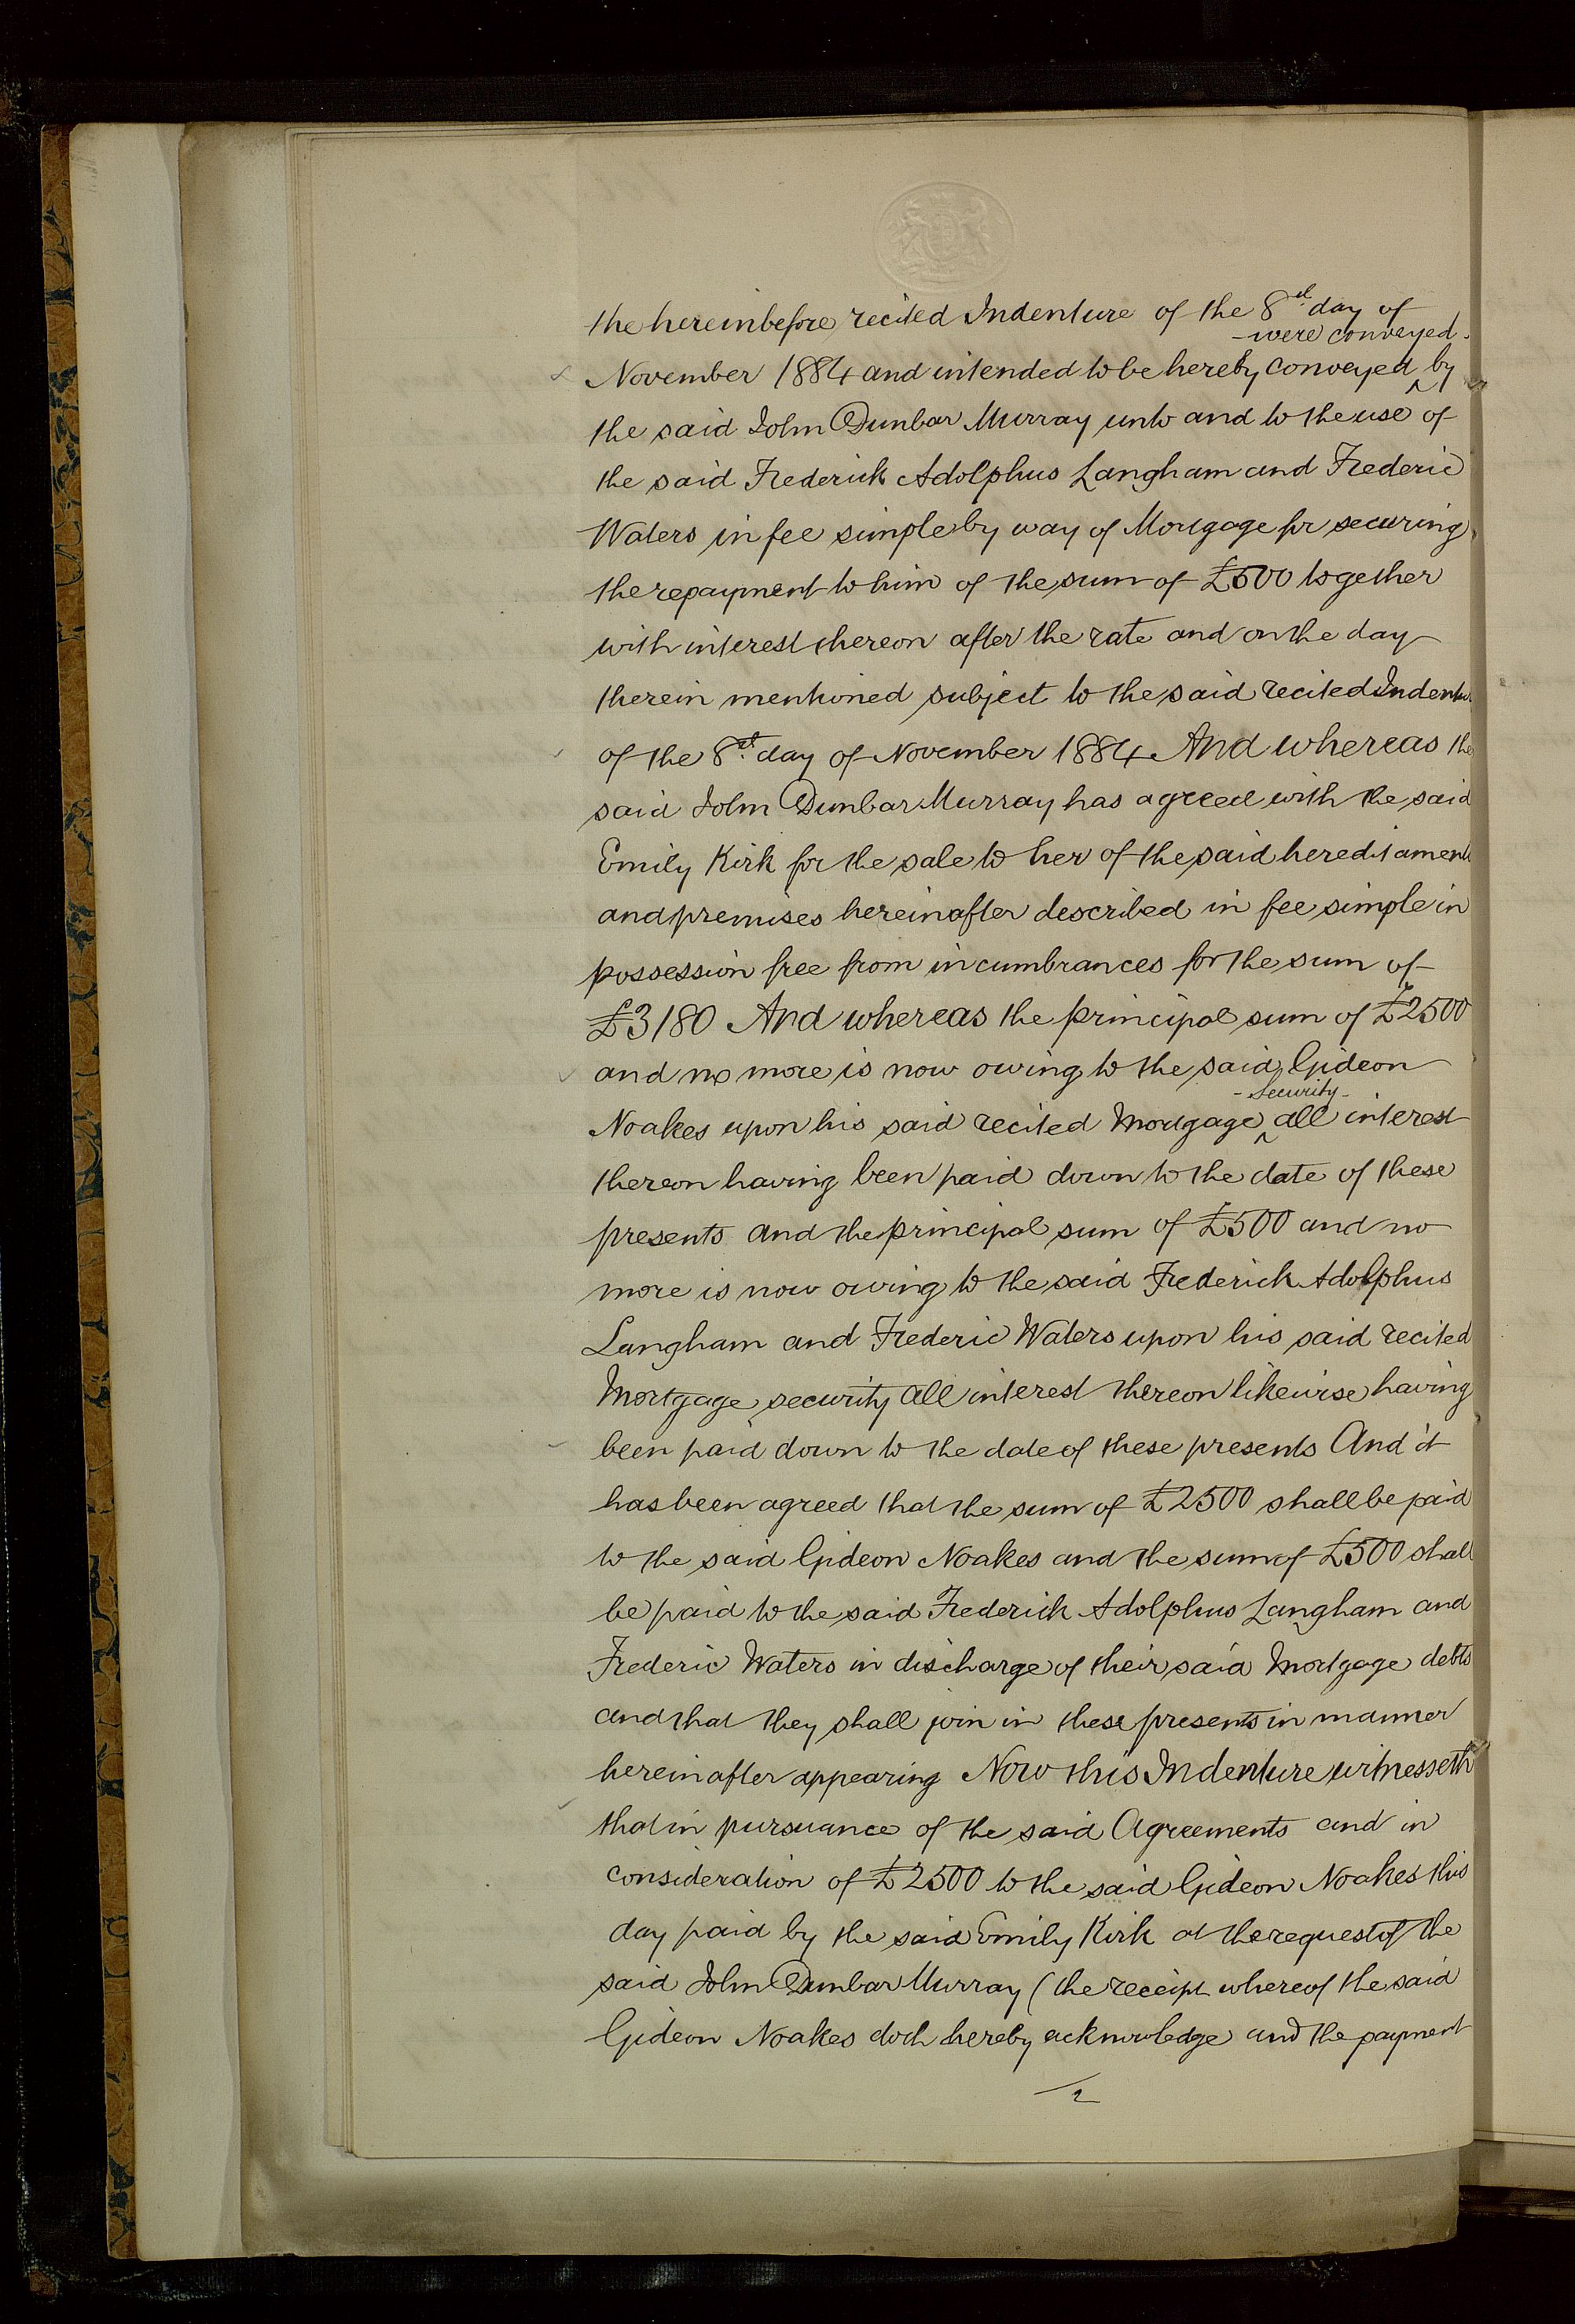 the hereinbefore recited Indenture of the 8th day of
- were conveyed -
November 1884 and intended to be hereby conveyed ^ by
the said John Dunbar Murray unto and to the use of
the said Frederick Adolphus Langham and Frederic
Waters in fee simple by way of Mortgage for securing
the repayment to him of the sum of £500 together
with interest thereon after the rate and on the day
therein mentioned subject to the said recited Indenture
of the 8th day of November 1884 And whereas the
said John Dunbar Murray has agreed with the said
Emily Kirk for the sale to her of the said hereditaments
and premises hereinafter described in fee simple in
possession free from incumbrances for the sum of
£3180 And whereas the principal sum of £2500
and no more is now owing to the said Gideon
- Security -
Noakes upon his said recited Mortgage ^ all interest
thereon having been paid down to the date of these
presents and the principal sum of £500 and no
more is now owing to the said Frederick Adolphus
Langham and Frederic Waters upon his said recited
Mortgage security all interest thereon likewise having
been paid down to the date of these presents And it
has been agreed that the sum of £2500 shall be paid
to the said Gideon Noakes and the sum of £500 shall
be paid to the said Frederick Adolphus Langham and
Frederic Waters in discharge of their said Mortgage debts
and that they shall join in these presents in manner
hereinafter appearing Now this Indenture witnesseth
that in pursuance of the said Agreements and in
consideration of £2500 to the said Gideon Noakes this
day paid by the said Emily Kirk at the request of the
said John Dunbar Murray (the receipt whereof the said
Gideon Noakes doth hereby acknowledge and the payment
2